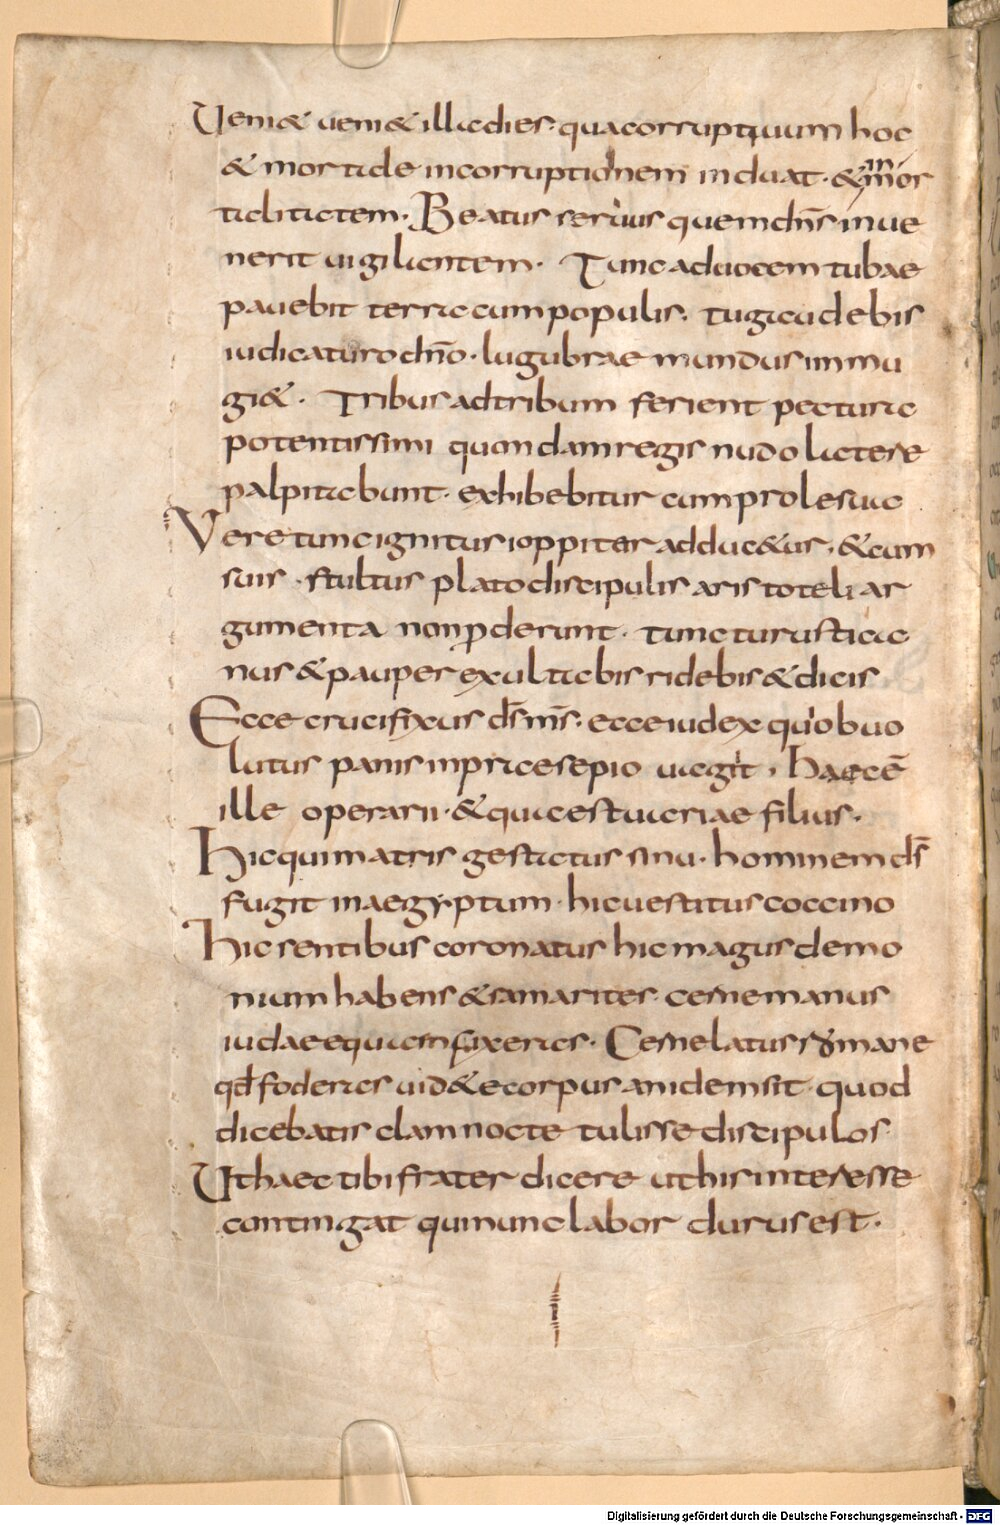 Ueni& ueni& illa dies · qua corruptiuum hoc
& mortale incorruptionem induat · & inmor
talitatem · Beatus seruus quem dn̄s inue
nerit uigilantem · Tunc ad uocem tubae
pauebit terra cum populis · tu gaudebis
iudicaturo dn̄o · lugubrae mundus inmu
gi& · Tribus ad tribum ferient pectura
potentissimi quondam regis nudo latere
palpitabunt · exhibebitur cum prole sua
Vere tunc ignitus ioppiter adduc&us · & cum
suis · stultus plato discipulis aristoteli ar
gumenta non ꝓderunt · tunc tu rustica
nus & pauper exultabis ridebis & dicis
Ecce crucifixus d̄s m̄s · ecce iudex qui obuo
lutus panis in praesepio uagit · haec ē
ille operarii · & quaestuariae filius ·
Hic qui matris gestatus sinu · hominem d̄s
fugit in aegyptum · hic uestitus coccino
Hic sentibus coronatus hic magus demo
nium habens & samarites · cerne manus
iudaee quam fixeras · Cerne latus romane
qd̄ foderas uid&e corpus an idem sit · quod
dicebatis clam nocte tulisse discipulos
Ut haec tibi frater dicere ut his interesse
contingat qui nunc labor durus est ·
Digitalisierung gefördert durch die Deutsche Forschungsgemeinschaft - DFG